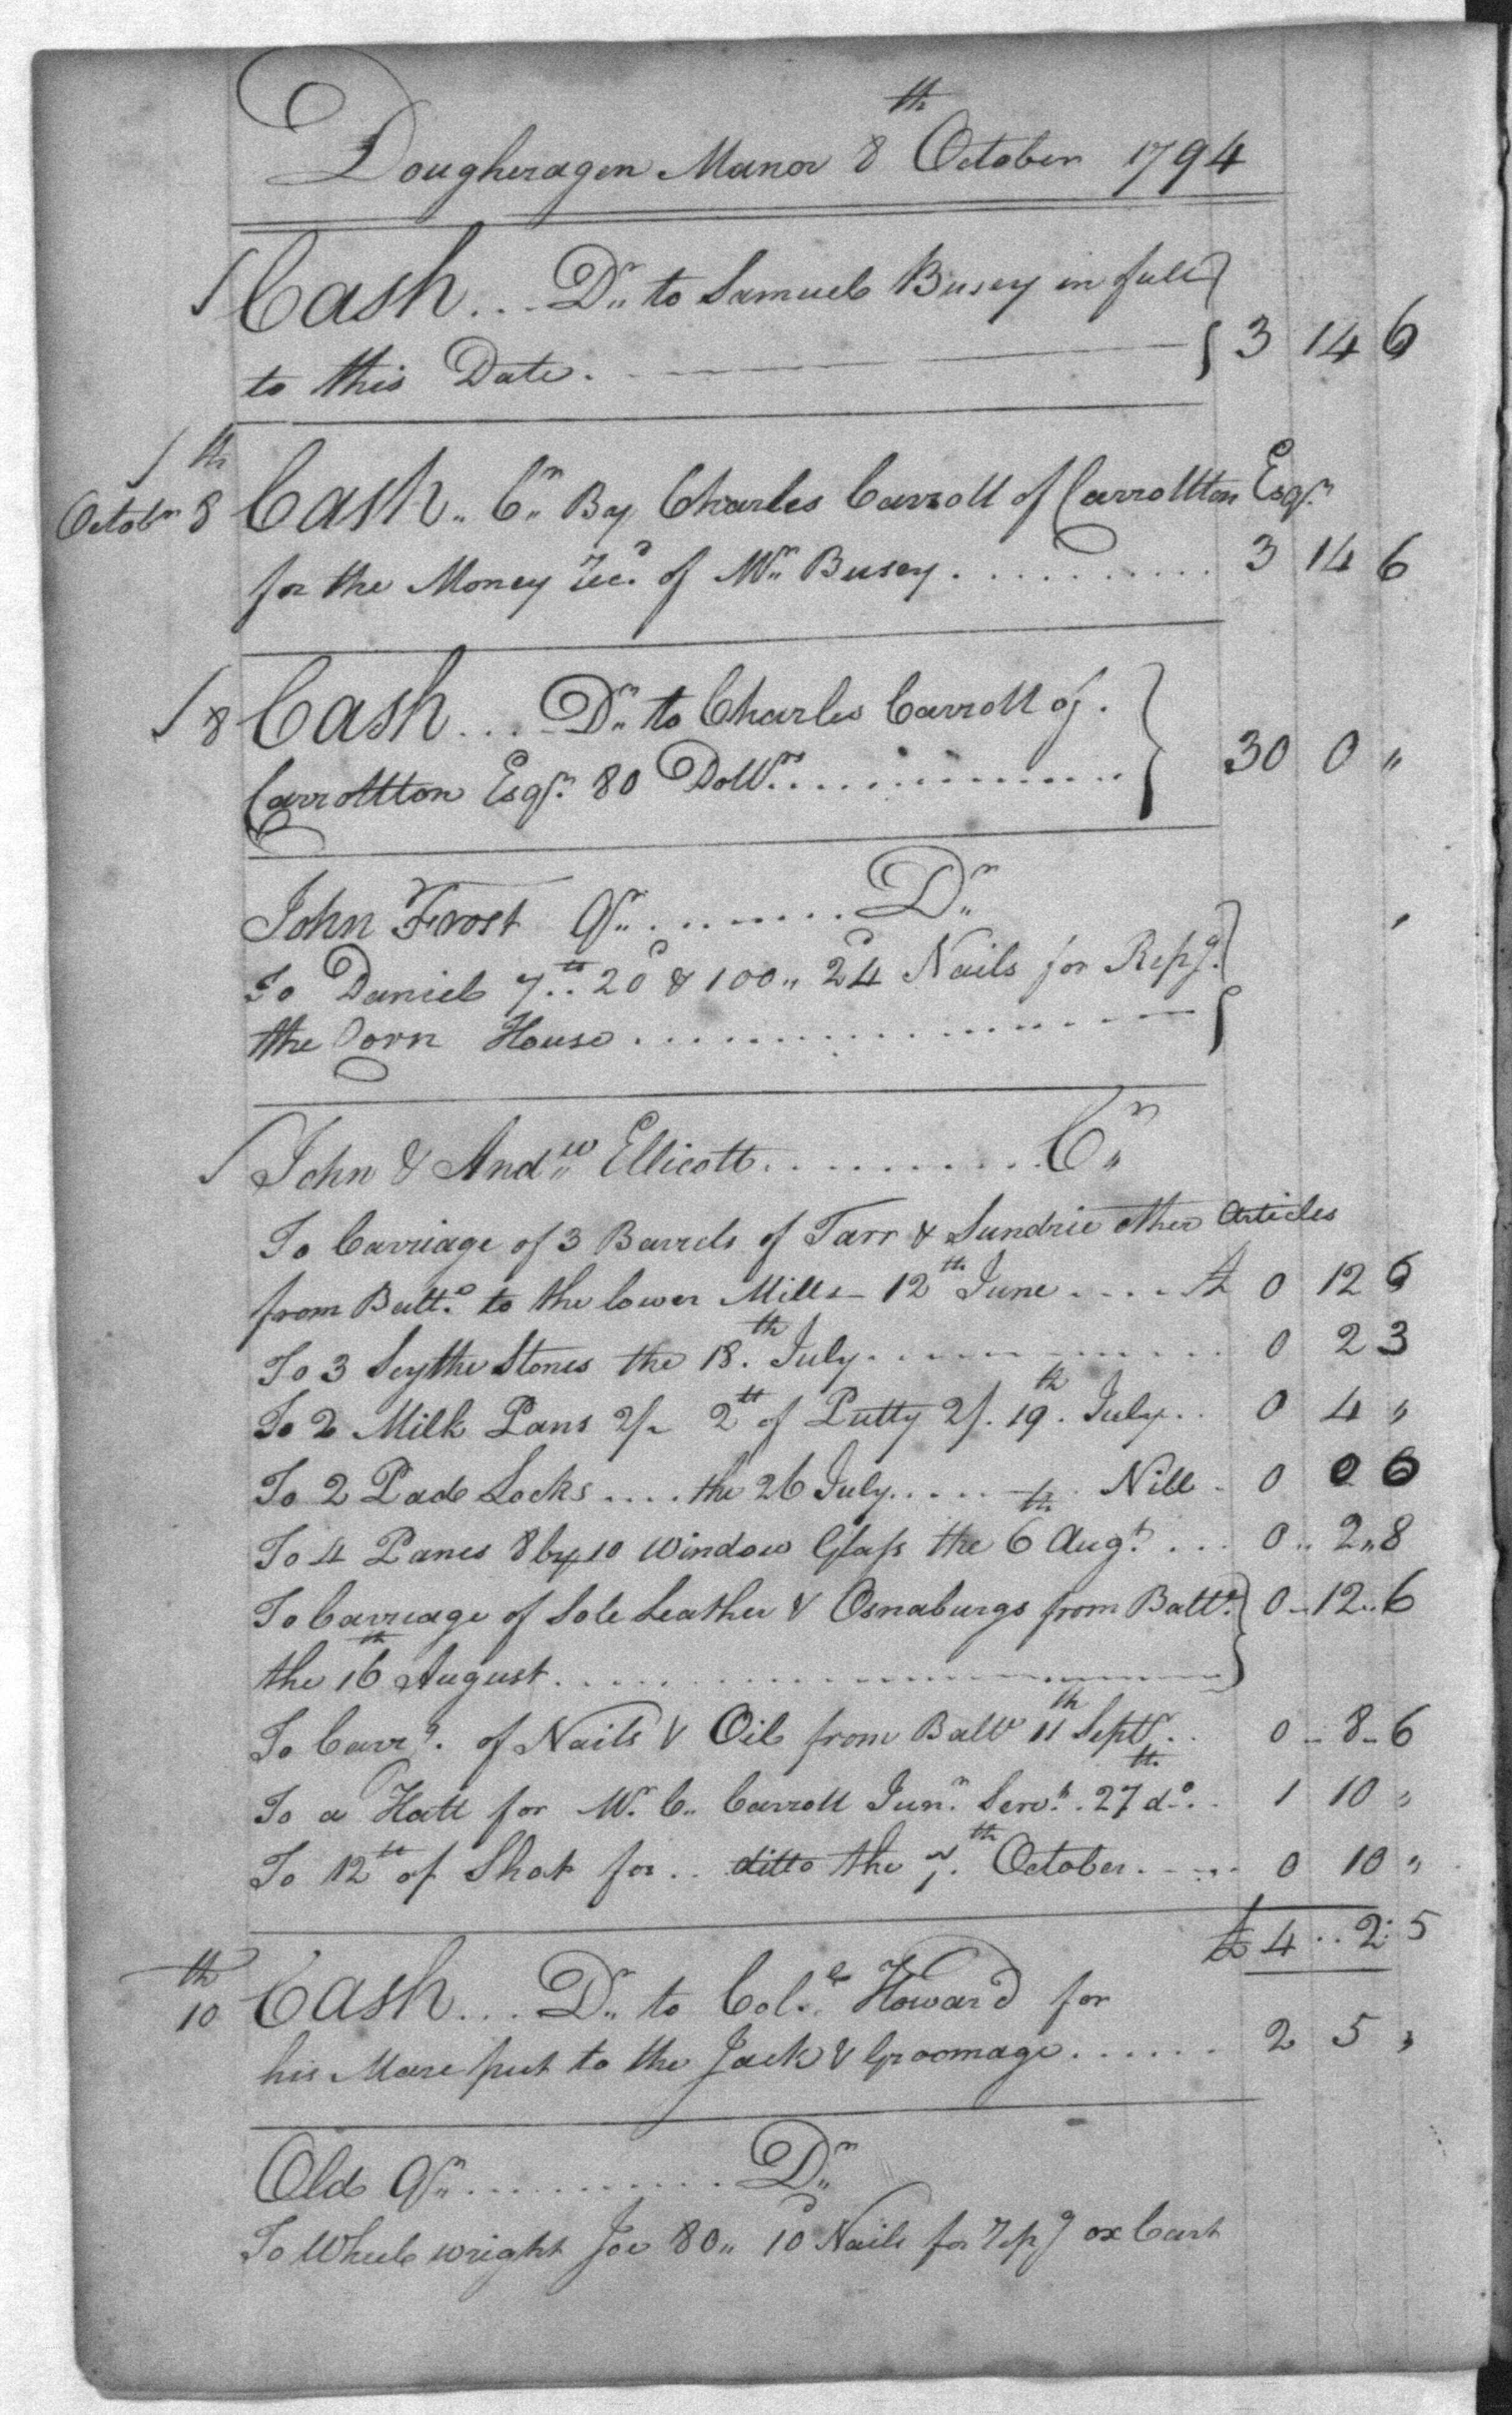 Dougheragen Manor 8th October 1794
Cash... Dr. to Samuel Busey in full
to this Date. 3 14 6
Octobr 8th Cash.. Cr. By Charles Carroll of Carrollton Esqr.
for the Money Recd. of Mr. Busey.......... 3 14 6
8 Cash.... Dr. to Charles Carroll of.
Carrollton Esqr. 80 Dollrs............... 30 0 "
John Frost Qr.......... Dr.
To Daniel 7lb.. 20d & 100 " 24d Nails for Repg.
the Corn House..................
John & Andw. Ellicott........... Cr.
To Carriage of 3 Barrels of Tarr & Sundrie other Articles
from Balto. to the lower Mills - 12th June..... £ 0 12 6
To 3 Scythe Stones the 18th. July........... 0 2 3
To 2 Milk Pans 2/- 2lb of Putty 2/. 19th. July.. 0 4 "
To 2 Pad Locks.... the 26th July...... Nill. 0 0 6
To 4 Panes 8 by 10 window Glass the 6th Augt.... 0.. 2 " 8
To Carriage of Sole Leather & Osnaburgs from Balto. 0 - 12.. 6
the 16th August..................
To Carrg. of Nails & Oil from Balto 11th Septr... 0 - 8 - 6
To a Hatt for Mr. C. Carroll Junr. Servt. 27th do... 1 10 "
To 12lb of Shot for.. ditto the 7th. October..... 0 10 "
£ 4.. 2: 5
10th Cash... Dr. to Coll. Howard for
his Mare put to the Jack & Groomage...... 2 5 "
Old Qr............ Dr.
To Wheel wright Joe 80 " 10d Nails for repg ox Cart